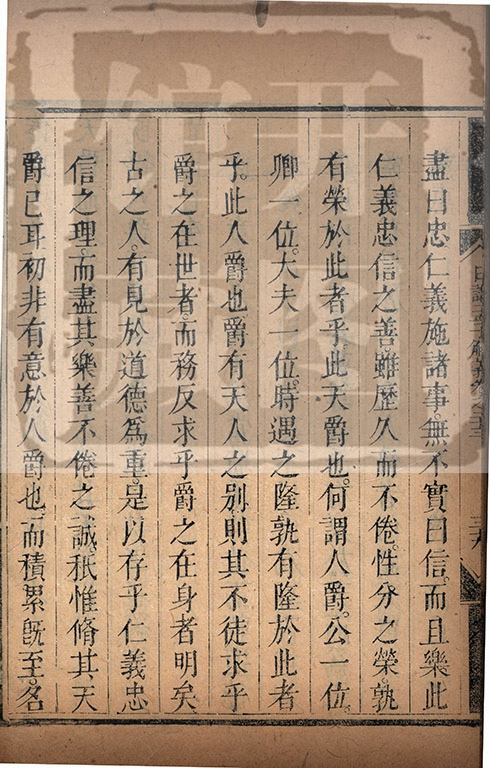 盡曰忠仁義施諸事無不實曰信而且樂此
仁義忠信之善雖歷久而不倦性分之榮孰
有榮於此者乎此天爵也何謂人爵公一位
卿一位大夫一位時遇之隆孰有隆於此者
乎此人爵也爵有天人之别則其不徒求乎
爵之在世者而務反求乎爵之在身者明矣
古之人有見於道德為重是以存乎仁義忠
信之理而盡其樂善不倦之誠秖惟脩其天
爵已耳初非有意於人爵也而積累旣至名